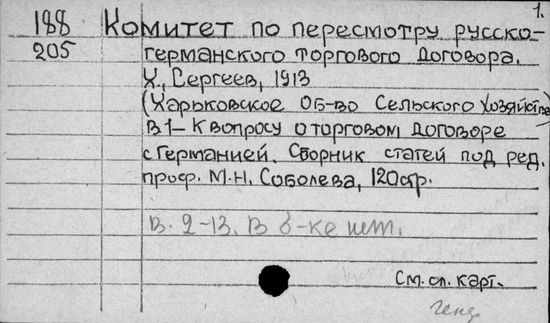 1.
188 Комитет по пересмотру русско-
205 германского торгового договора.
Х., Сергеев, 1913
(Харьковское Об-во Сельского Хозяйства)
В 1 – К вопросу о торговом договоре
с Германией. Сборник статей под ред.
проф. М.Н. Соболева, 120 стр.
В. 2-13. В б-ке шт.
См. сл. карт.